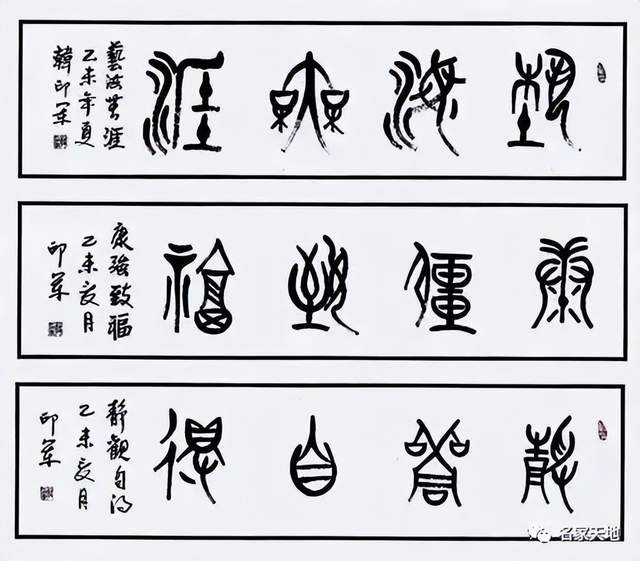 藝海無涯
藝海無涯
乙未年夏
韓印軍
康彊致福
康強致福
乙未夏月
印軍
靜觀自得
靜觀自得
乙未夏月
印軍
名家天地